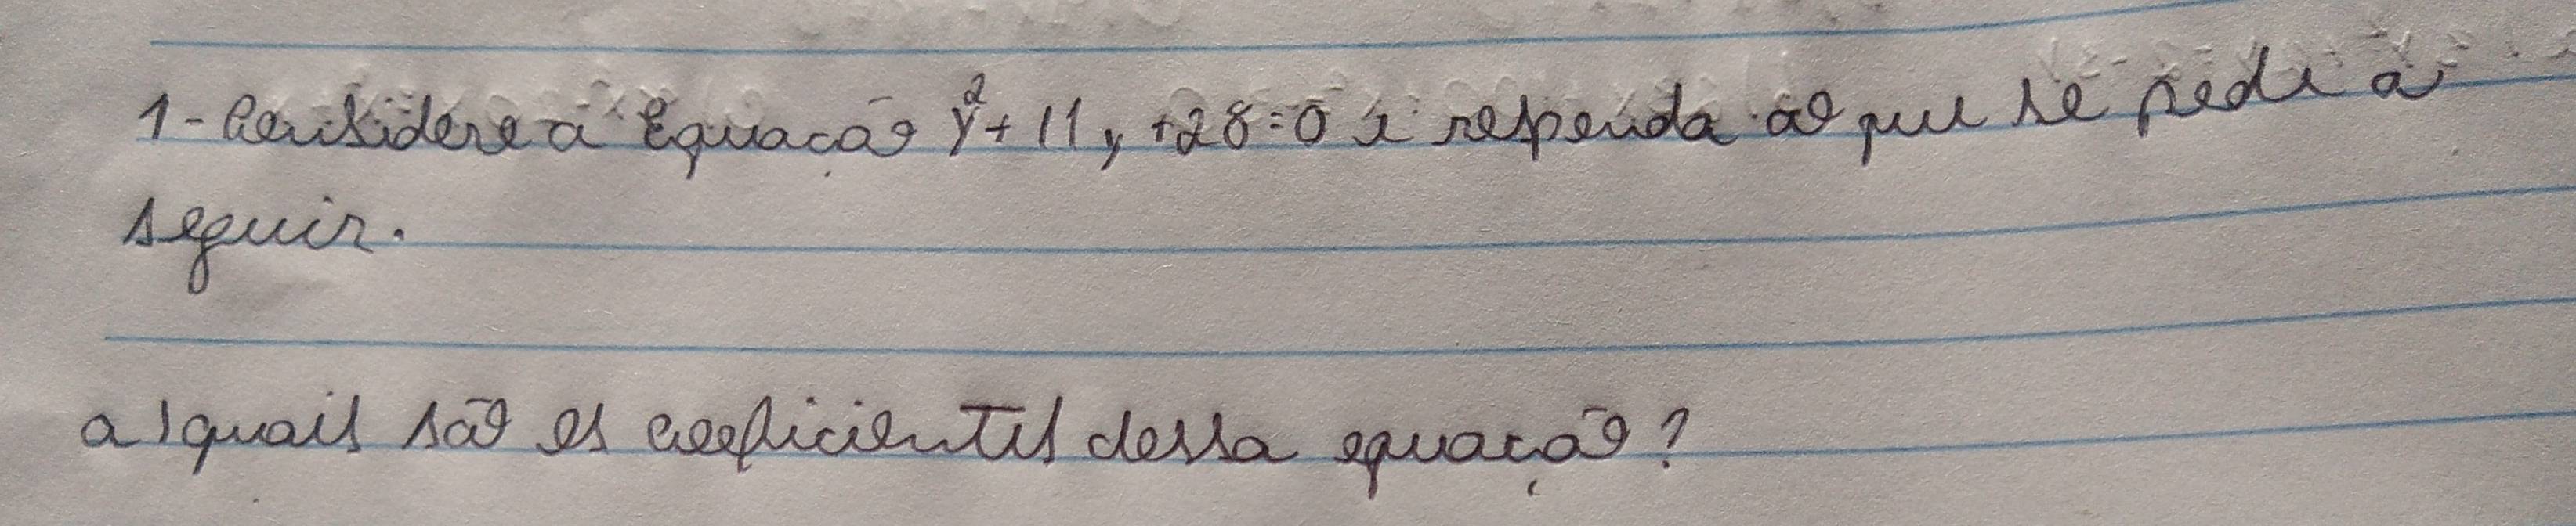 1- Considere a Equação y²+11y+28=0 e responda ao que se pede a
seguir.
a) quais são os coeficientes dessa equação?